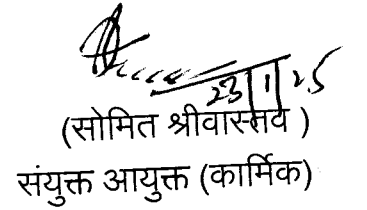 23/1/25
(सोमित श्रीवास्तव )
संयुक्त आयुक्त (कार्मिक)